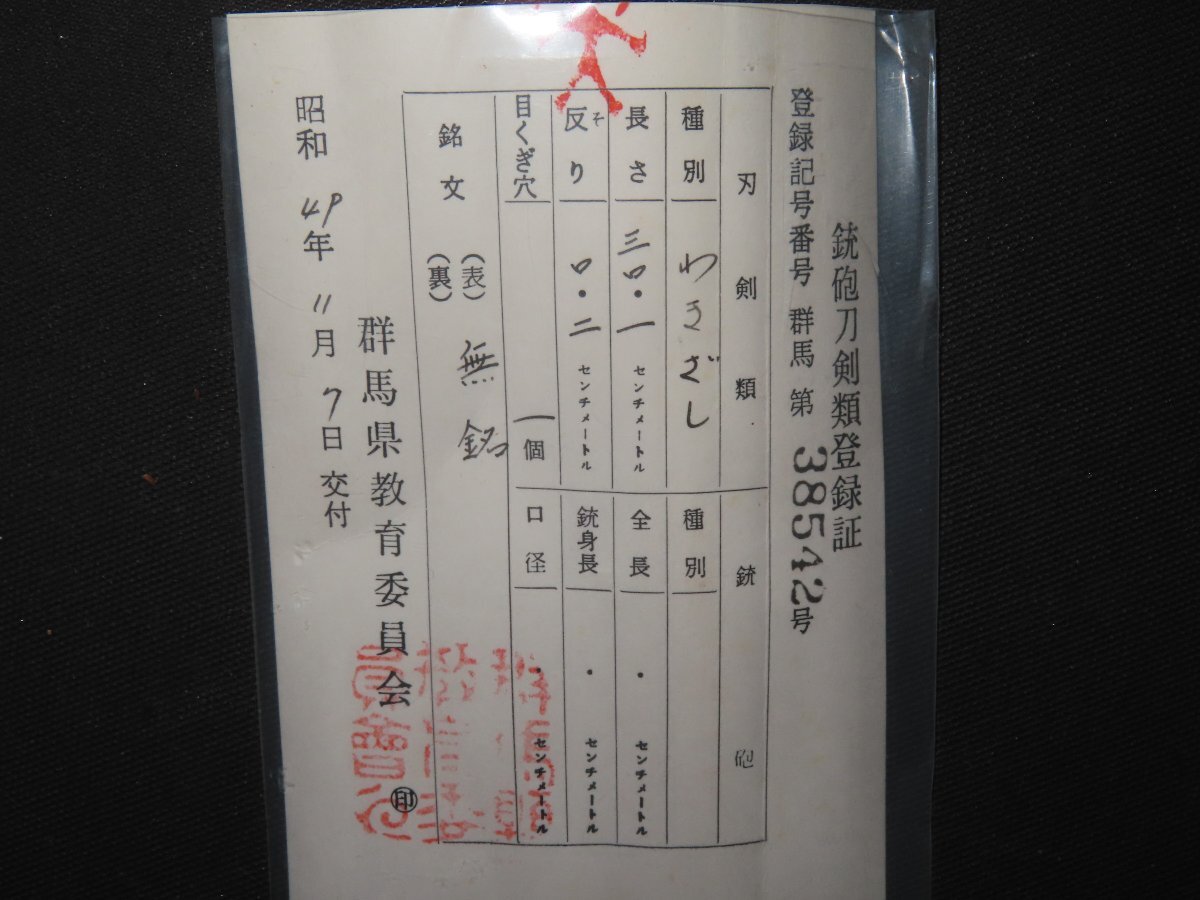 銃砲刀剣類登録証
登録記号番号 群馬 第 38542号
刃剣類
銃砲
種別 わきざし
種別
長さ 三〇・一 センチメートル
全長 ・ センチメートル
反り そ 〇・二 センチメートル
銃身長 ・ センチメートル
目くぎ穴 一個
口径 ・ センチメートル
銘文 (表) 無銘
(裏)
群馬県教育委員会 印
昭和 49年 11月 7日 交付